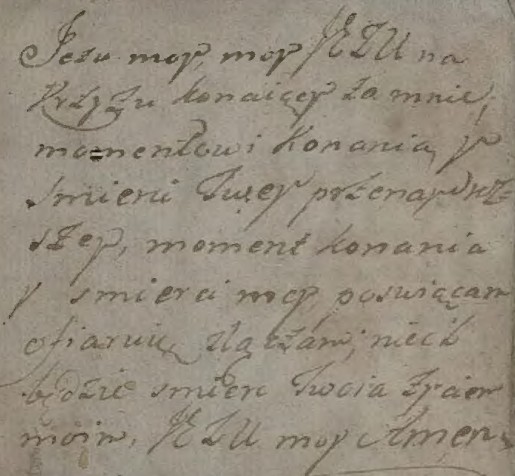 Jezu moy, moy JEZU na
Krzyżu konaiący za mnie,
momentowi konania, y
śmierci Twey przenaydroż-
szey, moment konania
y smierci mey poswiącam
ofiaruię złączam; niech
będzie smierc Twoia życiem
moim, JEZU moy Amen